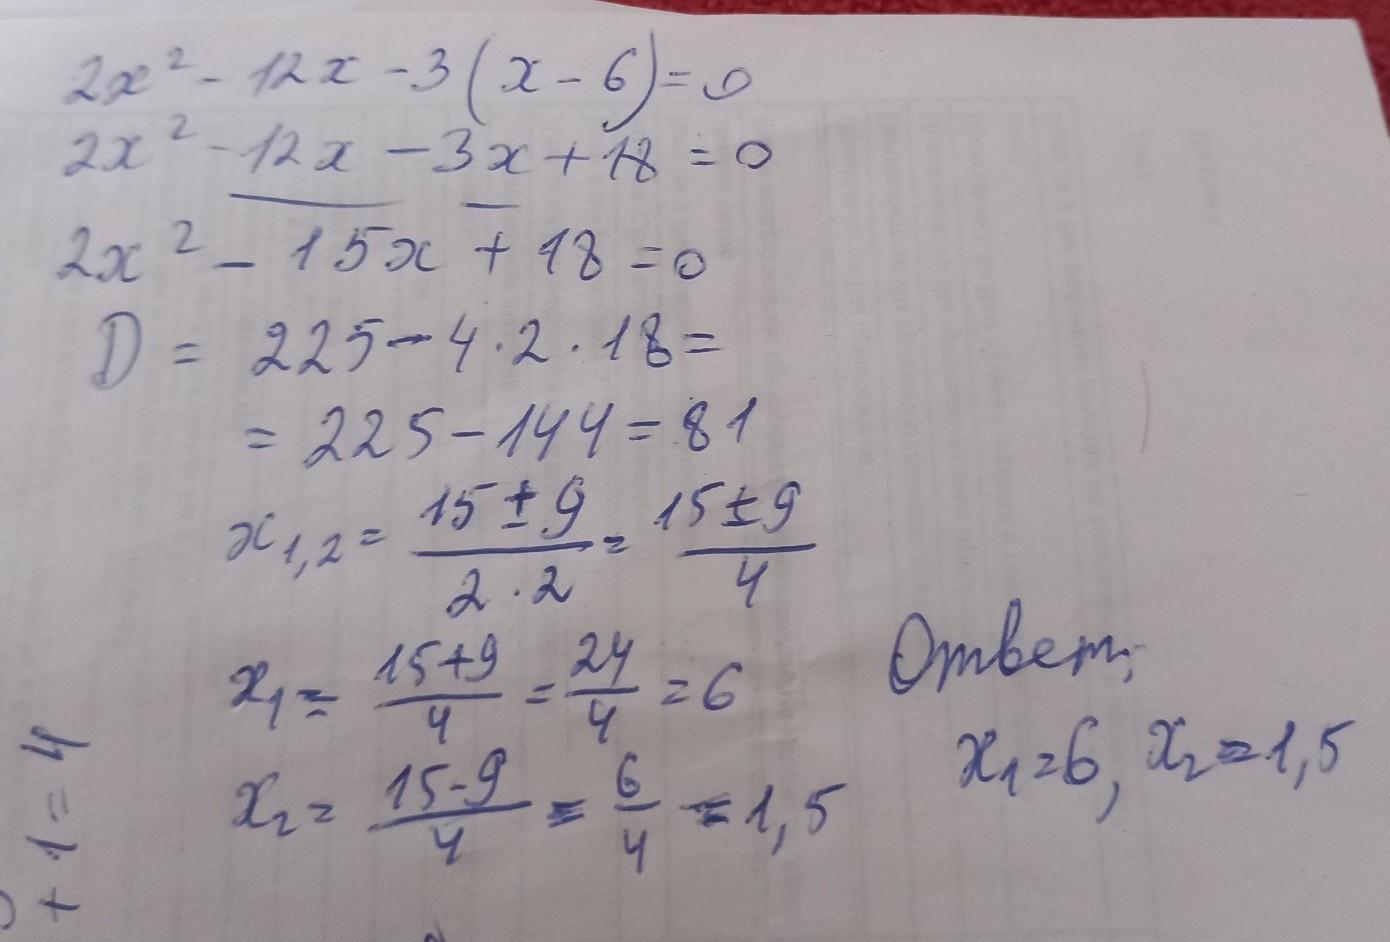 2x² - 12x - 3(x - 6) = 0
2x² - 12x - 3x + 18 = 0
2x² - 15x + 18 = 0
D = 225 - 4 · 2 · 18 =
= 225 - 144 = 81
x₁,₂ = (15 ± 9)/(2 · 2) = (15 ± 9)/4
x₁ = (15+9)/4 = 24/4 = 6
x₂ = (15-9)/4 = 6/4 = 1,5
Ответ:
x₁=6, x₂=1,5
+ 1 = 4